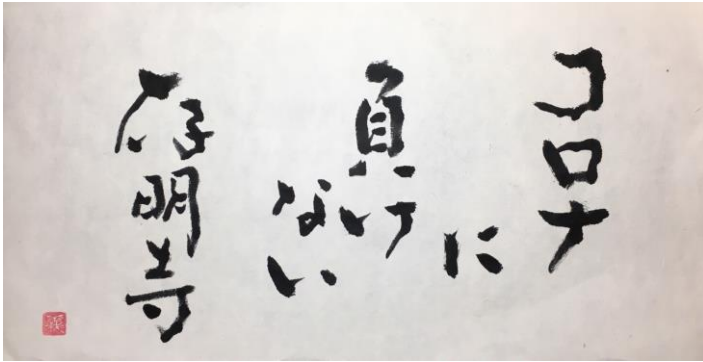 コロナ
に
負け
ない
存明寺